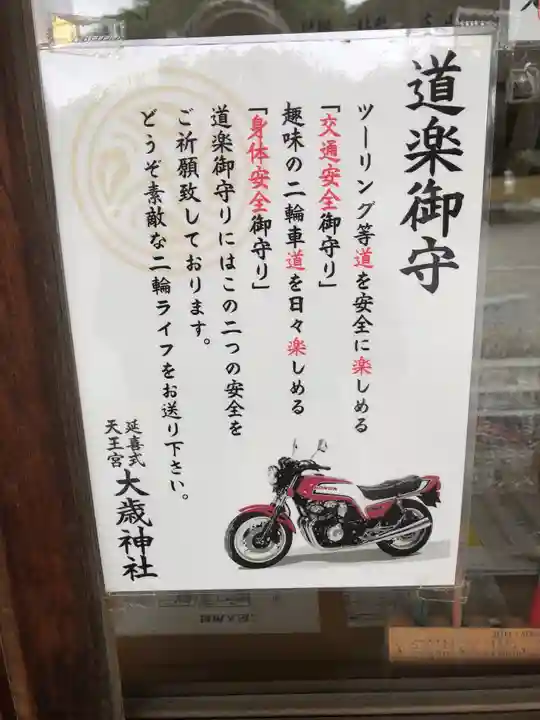 道楽御守
ツーリング等道を安全に楽しめる
「交通安全御守り」
趣味の二輪車道を日々楽しめる
「身体安全御守り」
道楽御守りにはこの二つの安全を
ご祈願致しております。
どうぞ素敵な二輪ライフをお送り下さい。
延喜式
天王宮
大歳神社
HONDA